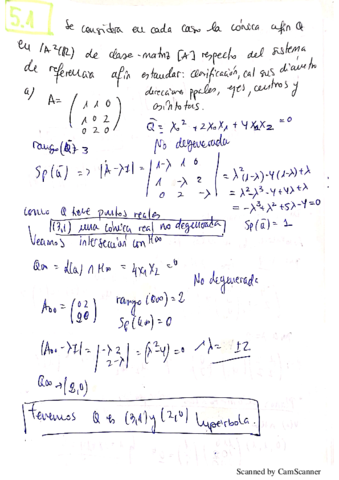 5.1 Se considera en cada caso la cónica afín Q
en |A²(R) de clase-matriz [A] respecto del sistema
de referencia afín estandar: clasificación, cal sus diámetr
direcciones ppales, ejes, centros y
asíntotas.
a) A = (1 1 0
1 0 2
0 2 0)
Q̄ = x₀² + 2x₀x₁ + 4x₁x₂ = 0
rango(Q̄) = 3 No degenerada
Sp(ā) => |A - λI| = |1-λ 1 0
1 -λ 2
0 2 -λ|
= λ²(1-λ) - 4(1-λ) + λ
= λ² - λ³ - 4 + 4λ + λ
= -λ³ + λ² + 5λ - 4 = 0
Sp(ā) = 1
como Q tiene puntos reales
(3,1) una cónica real no degenerada
Veamos intersección con H∞
Q∞ = L(a) ∩ H∞ = 4x₁x₂ = 0
No degenerada
A∞ = (0 2
2 0)
rango(Q∞) = 2
Sp(Q∞) = 0
|A∞ - λI| = |-λ 2
2 -λ| = (λ² - 4) = 0 λ = ±2
Q∞ → (2,0)
Tenemos Q es (3,1) y (2,0) hiperbola.
Scanned by CamScanner